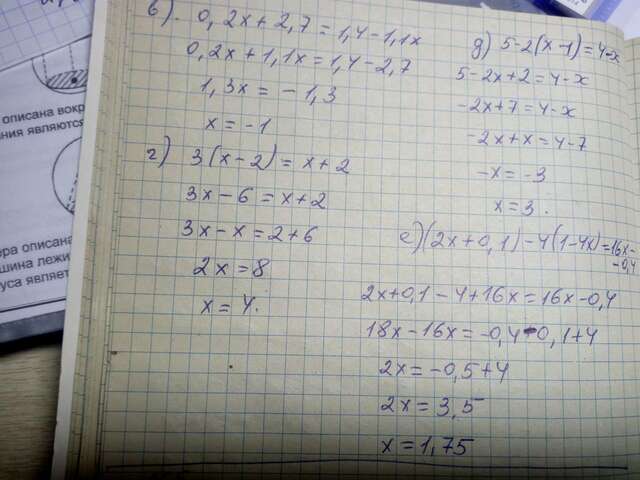 в). 0,2x + 2,7 = 1,4 - 1,1x
0,2x + 1,1x = 1,4 - 2,7
1,3x = - 1,3
x = -1
г) 3(x - 2) = x + 2
3x - 6 = x + 2
3x - x = 2 + 6
2x = 8
x = 4.
д) 5 - 2(x - 1) = 4 - x
5 - 2x + 2 = 4 - x
-2x + 7 = 4 - x
-2x + x = 4 - 7
-x = -3
x = 3.
е) (2x + 0,1) - 4(1 - 4x) = 16x -
-0,4
2x + 0,1 - 4 + 16x = 16x - 0,4
18x - 16x = -0,4 - 0,1 + 4
2x = -0,5 + 4
2x = 3,5
x = 1,75
описана вокр
ания являются
ора описана
шина лежи
уса является